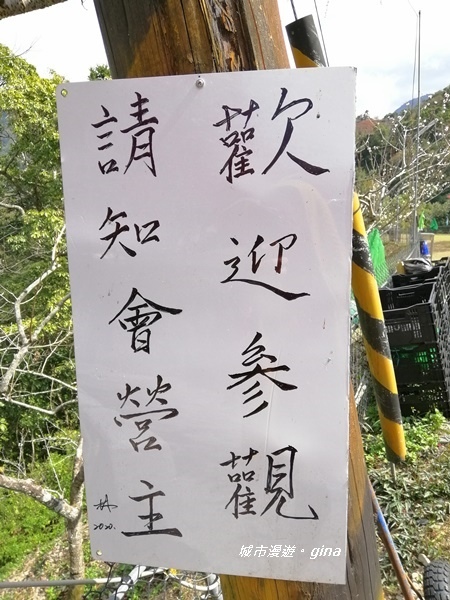 歡迎參觀
請知會營主
2020.
城市漫遊。gina